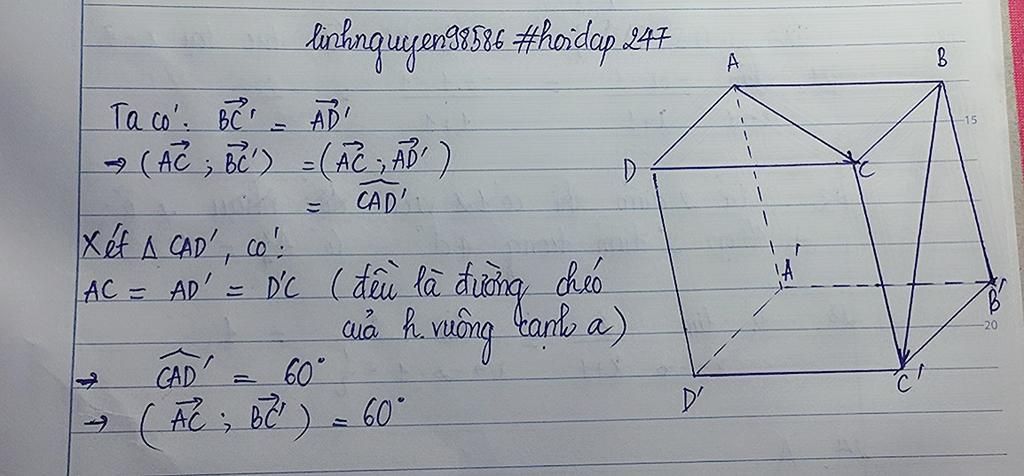 linhnguyen98586 #hoidap247
Ta có: BC'→ = AD'→
→ (AC→ ; BC'→) = (AC→ ; AD'→)
= ∠CAD'
Xét Δ CAD', có:
AC = AD' = D'C (đều là đường chéo
của h.vuông cạnh a)
→ ∠CAD' = 60°
→ (AC→ ; BC'→) = 60°
A
B
D
C
A'
B'
D'
C'
15
20